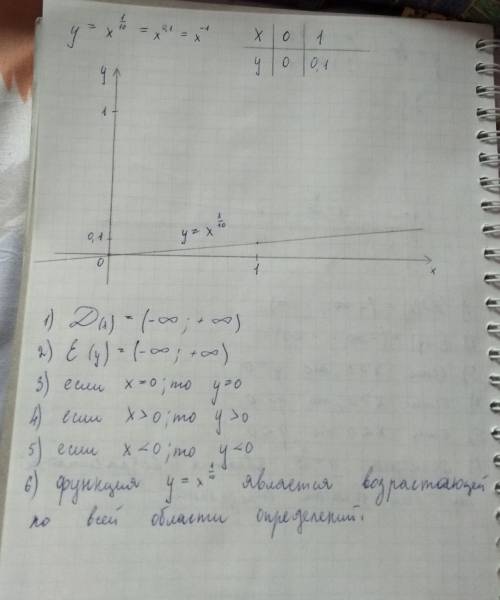 y = x^{1/10} = x^{0,1} = x^{-1}
x 0 1
y 0 0,1
y
1
0,1
y = x^{1/10}
0 1 x
1) D(x) = (-∞ ; +∞)
2) E(y) = (-∞ ; +∞)
3) если x=0; то y=0
4) если x>0; то y>0
5) если x<0; то y<0
6) функция y = x^{1/10} является возрастающей
по всей области определений.